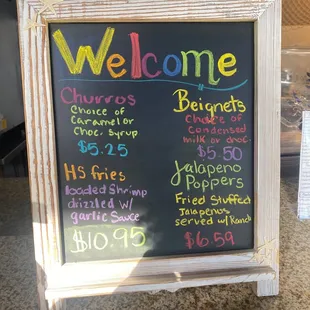 Welcome
Churros
Choice of
Caramel or
Choc. Syrup
$5.25
HS fries
loaded Shrimp
drizzled w/
garlic Sauce
$10.95
Beignets
Choice of
Condensed
milk or choc.
$5.50
Jalapeno
Poppers
Fried Stuffed
Jalapenos
served w/ Ranch
$6.59